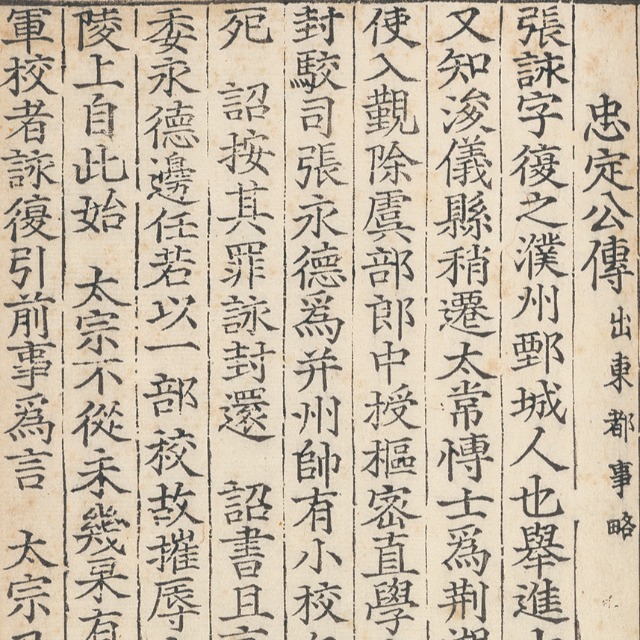 忠定公傳 出東都事略
張詠字復之濮州鄄城人也舉進
又知浚儀縣稍遷太常愽士爲荆
使入覲除虞部郎中授樞密直學
封駮司張永德爲并州帥有小校
死 詔按其罪詠封還 詔書且
委永德邊任若以一部校故摧辱
陵上自此始 太宗不從未幾果有
軍校者詠復引前事爲言 太宗